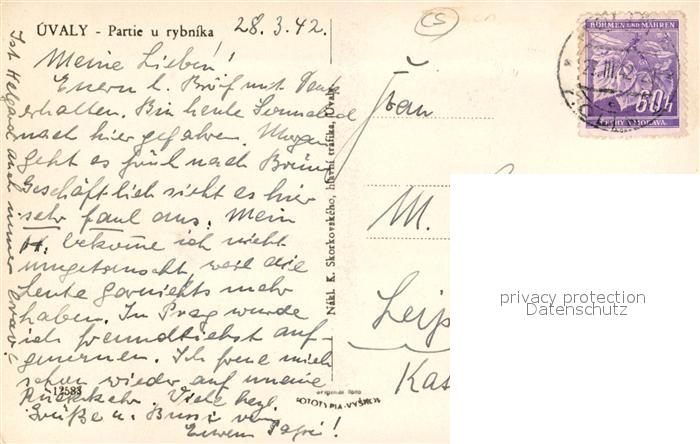 ÚVALY - Partie u rybníka
28.3.42.
Meine Lieben!
Euern l. Brief mit Dank
erhalten. Bin heute Sonnabend
nach hier gefahren. Morgen
geht es früh nach Brünn
Geschäftlich sieht es hier
sehr faul aus. Mein
bekomme ich nicht
umgetauscht, weil die
Leute garnichts mehr
haben. In Prag wurde
ich freundlichst auf-
genommen. Ich freue mich
schon wieder auf meine
Rückkehr. Viele herzl.
Grüße u. Bussi von
Euerm Papi!
Ist Helgard auch immer brav?
12583
Nákl. K. Skorkovského, hlavní trafika, Úvaly
original foto
FOTOTYPIA-VYŠKOV
CS
BÖHMEN UND MÄHREN
60h
ČECHY A MORAVA
Frau
M.
Leip
Kas
privacy protection
Datenschutz